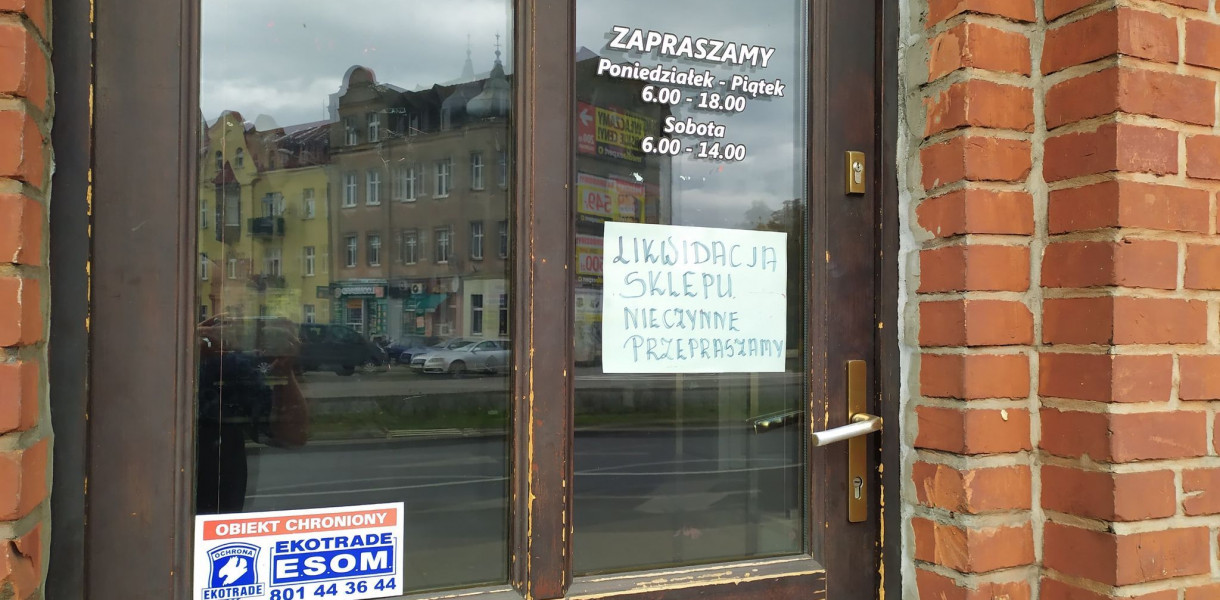 ZAPRASZAMY
Poniedziałek - Piątek
6.00 - 18.00
Sobota
6.00 - 14.00
LIKWIDACJA
SKLEPU.
NIECZYNNE
PRZEPRASZAMY
OBIEKT CHRONIONY
OCHRONA
EKOTRADE
EKOTRADE
E.S.O.M.
801 44 36 44